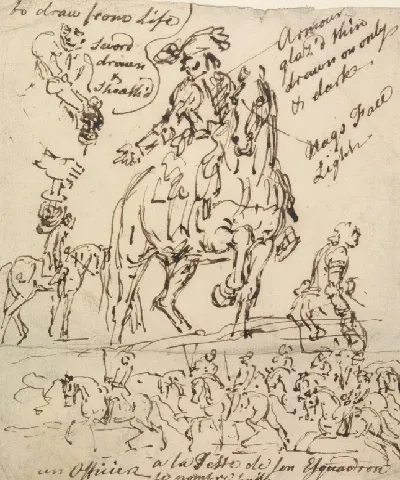 to draw from life
Sword
drawn
&
Sheath'd
Armour
glaz'd thin
drawn on only
& dark
Nags Face
Light
un Officier a la Teste de son Esquadron